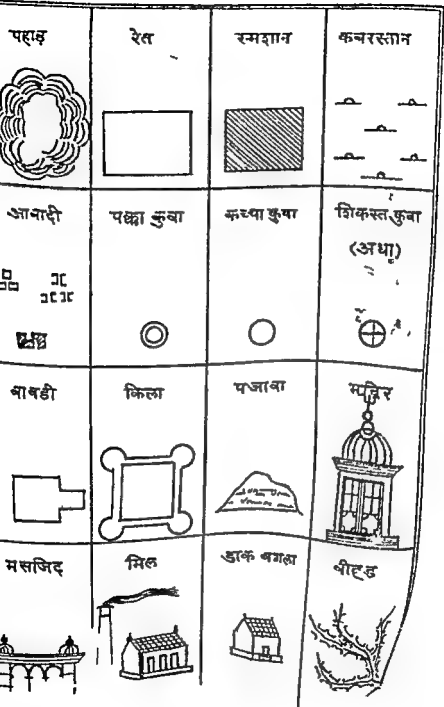 पहाड़
रेत
स्मशान
कबरस्तान
आबादी
पक्का कुवा
कच्चा कुवा
शिकस्त कुवा
(अंधा)
बावडी
किला
पजावा
मन्दिर
मसजिद
मिल
डाक बगला
बीहड